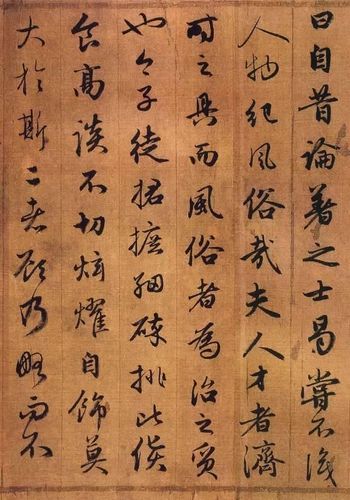 曰自昔論著之士曷嘗不識
人物紀風俗哉夫人才者濟
時之具而風俗者為治之質
也今子徒捃摭細碎排比
高談不切炫燿自飾莫
大於斯二者顧乃略而不